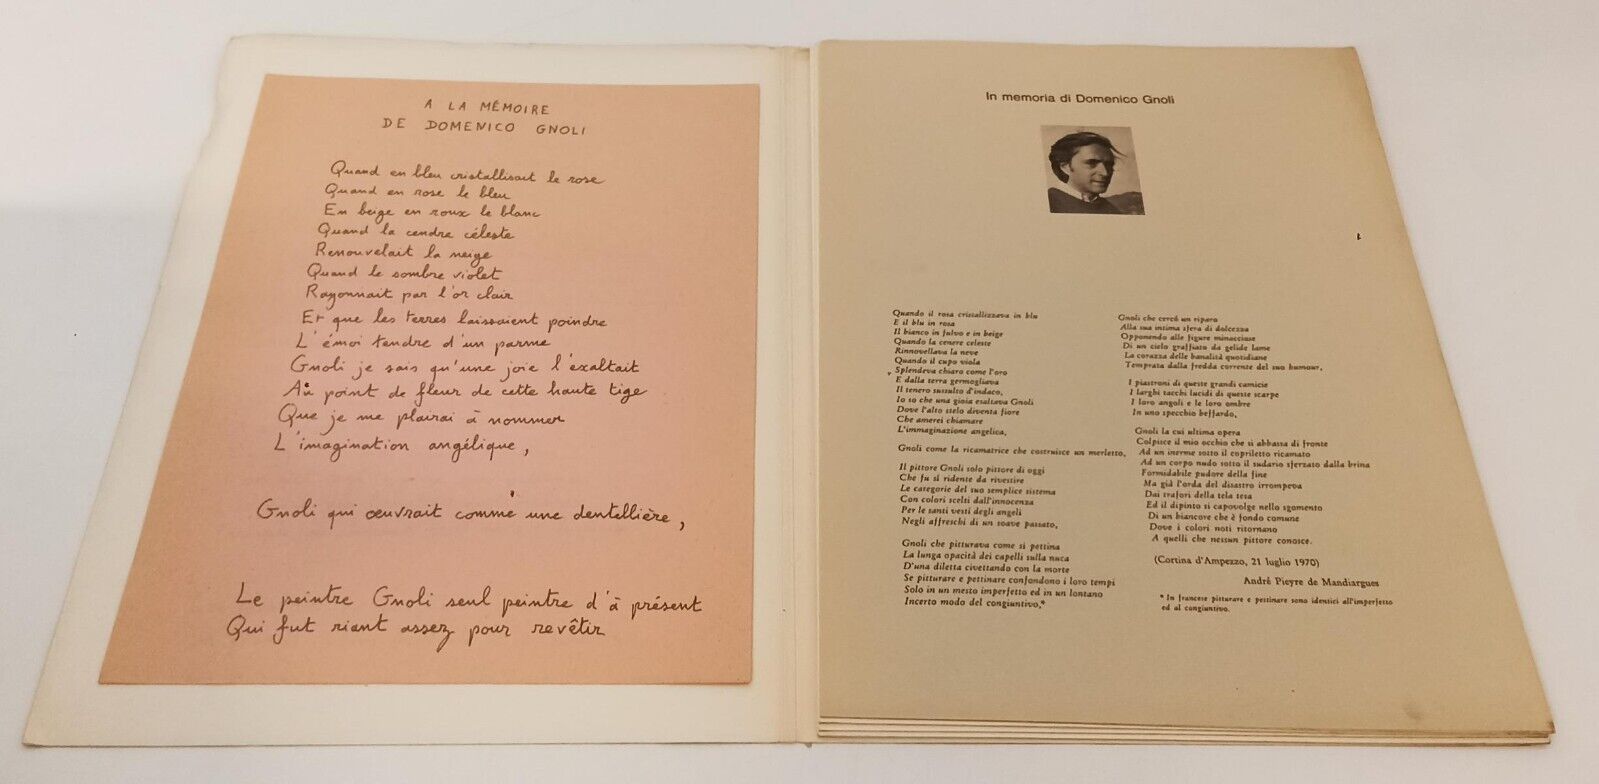 A LA MÉMOIRE
DE DOMENICO GNOLI
Quand en bleu cristallisait le rose
Quand en rose le bleu
En beige en roux le blanc
Quand la cendre céleste
Renouvelait la neige
Quand le sombre violet
Rayonnait par l'or clair
Et que les terres laissaient poindre
L'émoi tendre d'un parme
Gnoli je sais qu'une joie l'exaltait
Au point de fleur de cette haute tige
Que je me plairai à nommer
L'imagination angélique,
Gnoli qui œuvrait comme une dentellière,
Le peintre Gnoli seul peintre d'à présent
Qui fut riant assez pour revêtir
In memoria di Domenico Gnoli
Quando il rosa cristallizzava in blu
E il blu in rosa
Il bianco in fulvo e in beige
Quando la cenere celeste
Rinnovellava la neve
Quando il cupo viola
Splendeva chiaro come l'oro
E dalla terra germogliava
Il tenero sussulto d'indaco,
Io so che una gioia esaltava Gnoli
Dove l'alto stelo diventa fiore
Che amerei chiamare
L'immaginazione angelica,
Gnoli come la ricamatrice che costruisce un merletto,
Il pittore Gnoli solo pittore di oggi
Che fu sì ridente da rivestire
Le categorie del suo semplice sistema
Con colori scelti dall'innocenza
Per le santi vesti degli angeli
Negli affreschi di un soave passato,
Gnoli che pitturava come si pettina
La lunga opacità dei capelli sulla nuca
D'una diletta civettando con la morte
Se pitturare e pettinare confondono i loro tempi
Solo in un mesto imperfetto ed in un lontano
Incerto modo del congiuntivo,*
Gnoli che cercò un riparo
Alla sua intima sfera di dolcezza
Opponendo alle figure minacciose
Di un cielo graffiato da gelide lame
La corazza delle banalità quotidiane
Temprata dalla fredda corrente del suo humour,
I piastroni di queste grandi camicie
I larghi tacchi lucidi di queste scarpe
I loro angoli e le loro ombre
In uno specchio beffardo,
Gnoli la cui ultima opera
Colpisce il mio occhio che si abbassa di fronte
Ad un inerme sotto il copriletto ricamato
Ad un corpo nudo sotto il sudario sferzato dalla brina
Formidabile pudore della fine
Ma già l'orda del disastro irrompeva
Dai trafori della tela tesa
Ed il dipinto si capovolge nello sgomento
Di un biancore che è fondo comune
Dove i colori noti ritornano
A quelli che nessun pittore conosce.
(Cortina d'Ampezzo, 21 luglio 1970)
André Pieyre de Mandiargues
* In francese pitturare e pettinare sono identici all'imperfetto
ed al congiuntivo.